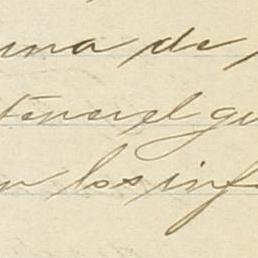 una de
tener el gu
n los inf